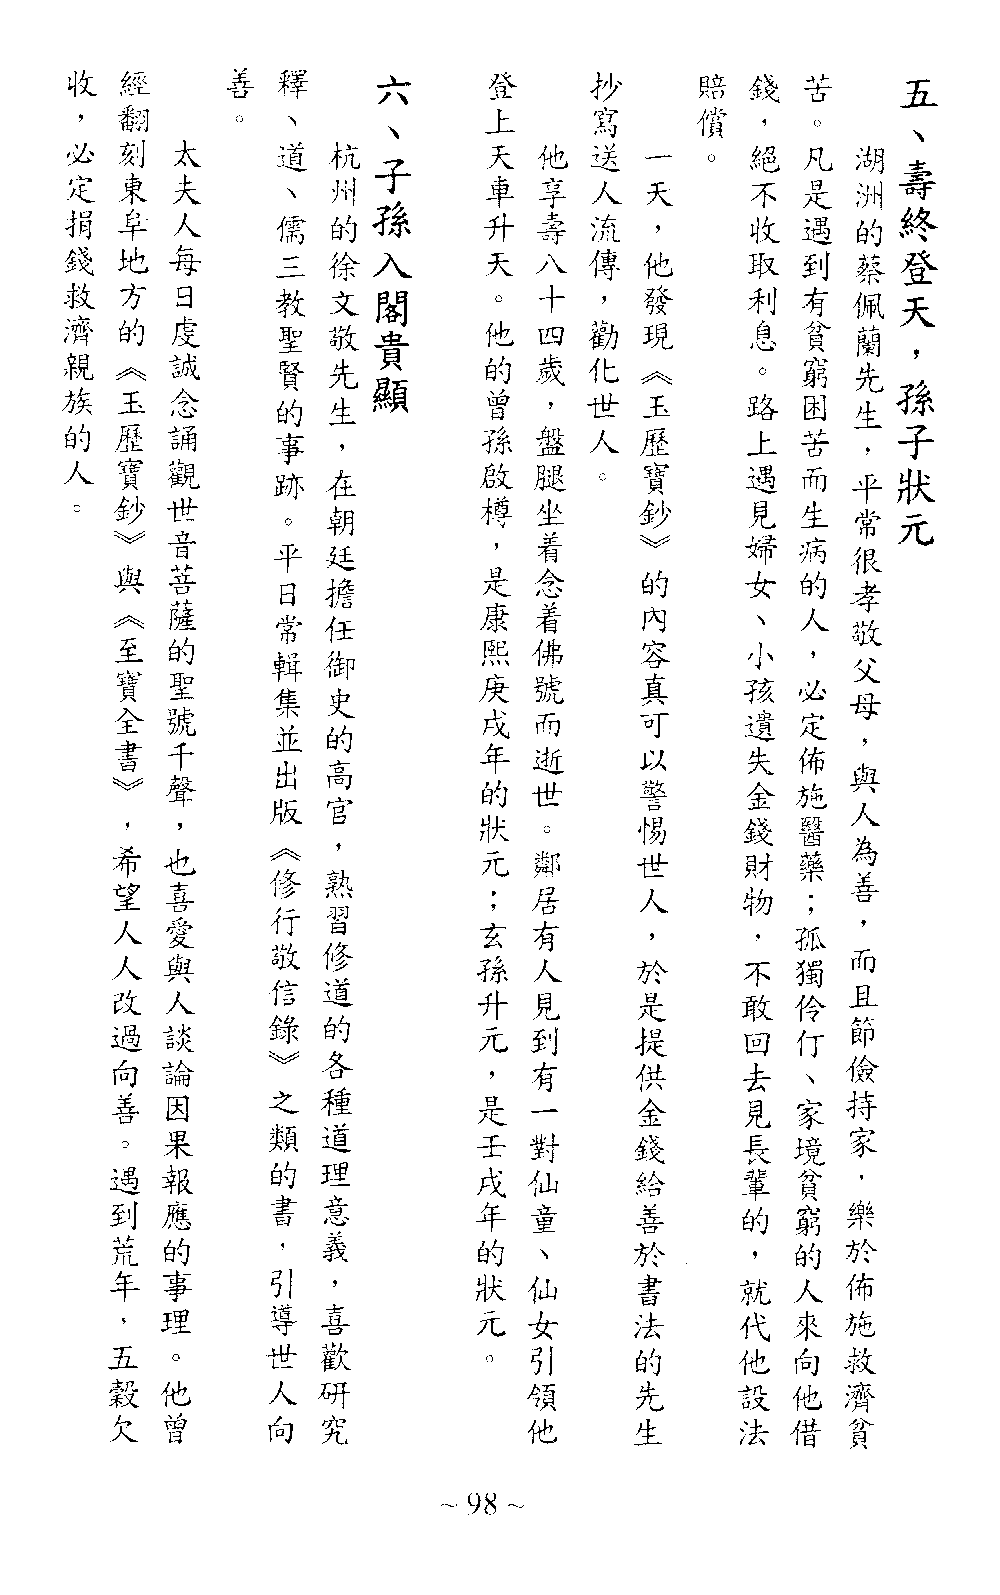 五、壽終登天，孫子狀元
湖洲的蔡佩蘭先生，平常很孝敬父母，與人為善，而且節儉持家，樂於佈施救濟貧
苦。凡是遇到有貧窮困苦而生病的人，必定佈施醫藥；孤獨伶仃、家境貧窮的人來向他借
錢，絕不收取利息。路上遇見婦女、小孩遺失金錢財物，不敢回去見長輩的，就代他設法
賠償。
一天，他發現《玉歷寶鈔》的內容真可以警惕世人，於是提供金錢給善於書法的先生
抄寫送人流傳，勸化世人。
他享壽八十四歲，盤腿坐着念着佛號而逝世。鄰居有人見到有一對仙童、仙女引領他
登上天車升天。他的曾孫啟樽，是康熙庚戌年的狀元；玄孫升元，是壬戌年的狀元。
六、子孫入閣貴顯
杭州的徐文敬先生，在朝廷擔任御史的高官，熟習修道的各種道理意義，喜歡研究
釋、道、儒三教聖賢的事跡。平日常輯集並出版《修行敬信錄》之類的書，引導世人向
善。
太夫人每日虔誠念誦觀世音菩薩的聖號千聲，也喜愛與人談論因果報應的事理。他曾
經翻刻東阜地方的《玉歷寶鈔》與《至寶全書》，希望人人改過向善。遇到荒年，五穀欠
收，必定捐錢救濟親族的人。
~ 98 ~